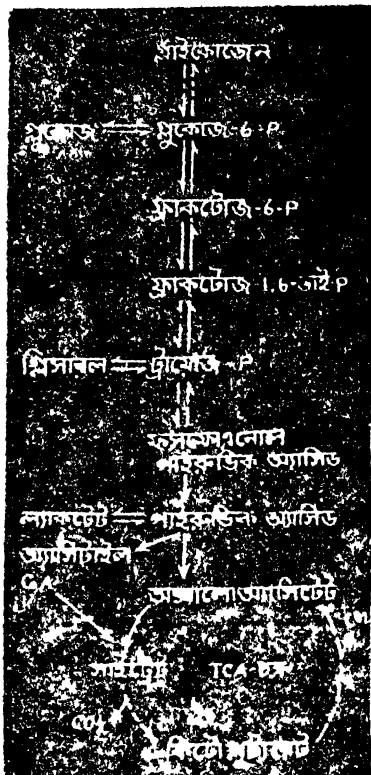 গ্লাইকোজেন
গ্লুকোজ গ্লুকোজ-6-P
ফ্রাকটোজ-6-P
ফ্রাকটোজ 1,6-ডাই-P
গ্লিসারল ট্রায়োজ-P
ফসফোএনোল
পাইরুভিক অ্যাসিড
ল্যাকটেট পাইরুভিক অ্যাসিড
অ্যাসিটাইল
অক্সালোঅ্যাসিটেট
সাইট্রেট TCA চক্র
CO₂